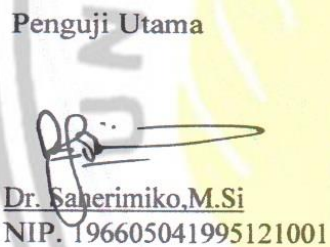 Penguji Utama
Dr. Saherimiko,M.Si
NIP. 196605041995121001